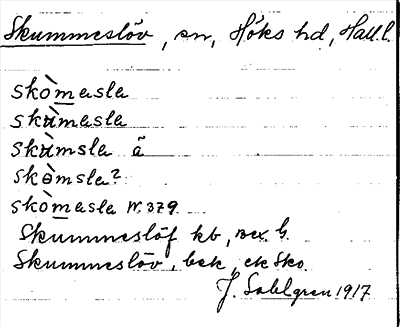 Skummeslöv, sn, Höks hd, Hall. l.
skòmasla
skùmasla
skùmsla ã
skòmsla?
skòmasla N. 379
Skummeslöf kb,
Skummeslöv, bek, ek Sko.
J. Sahlgren 1917